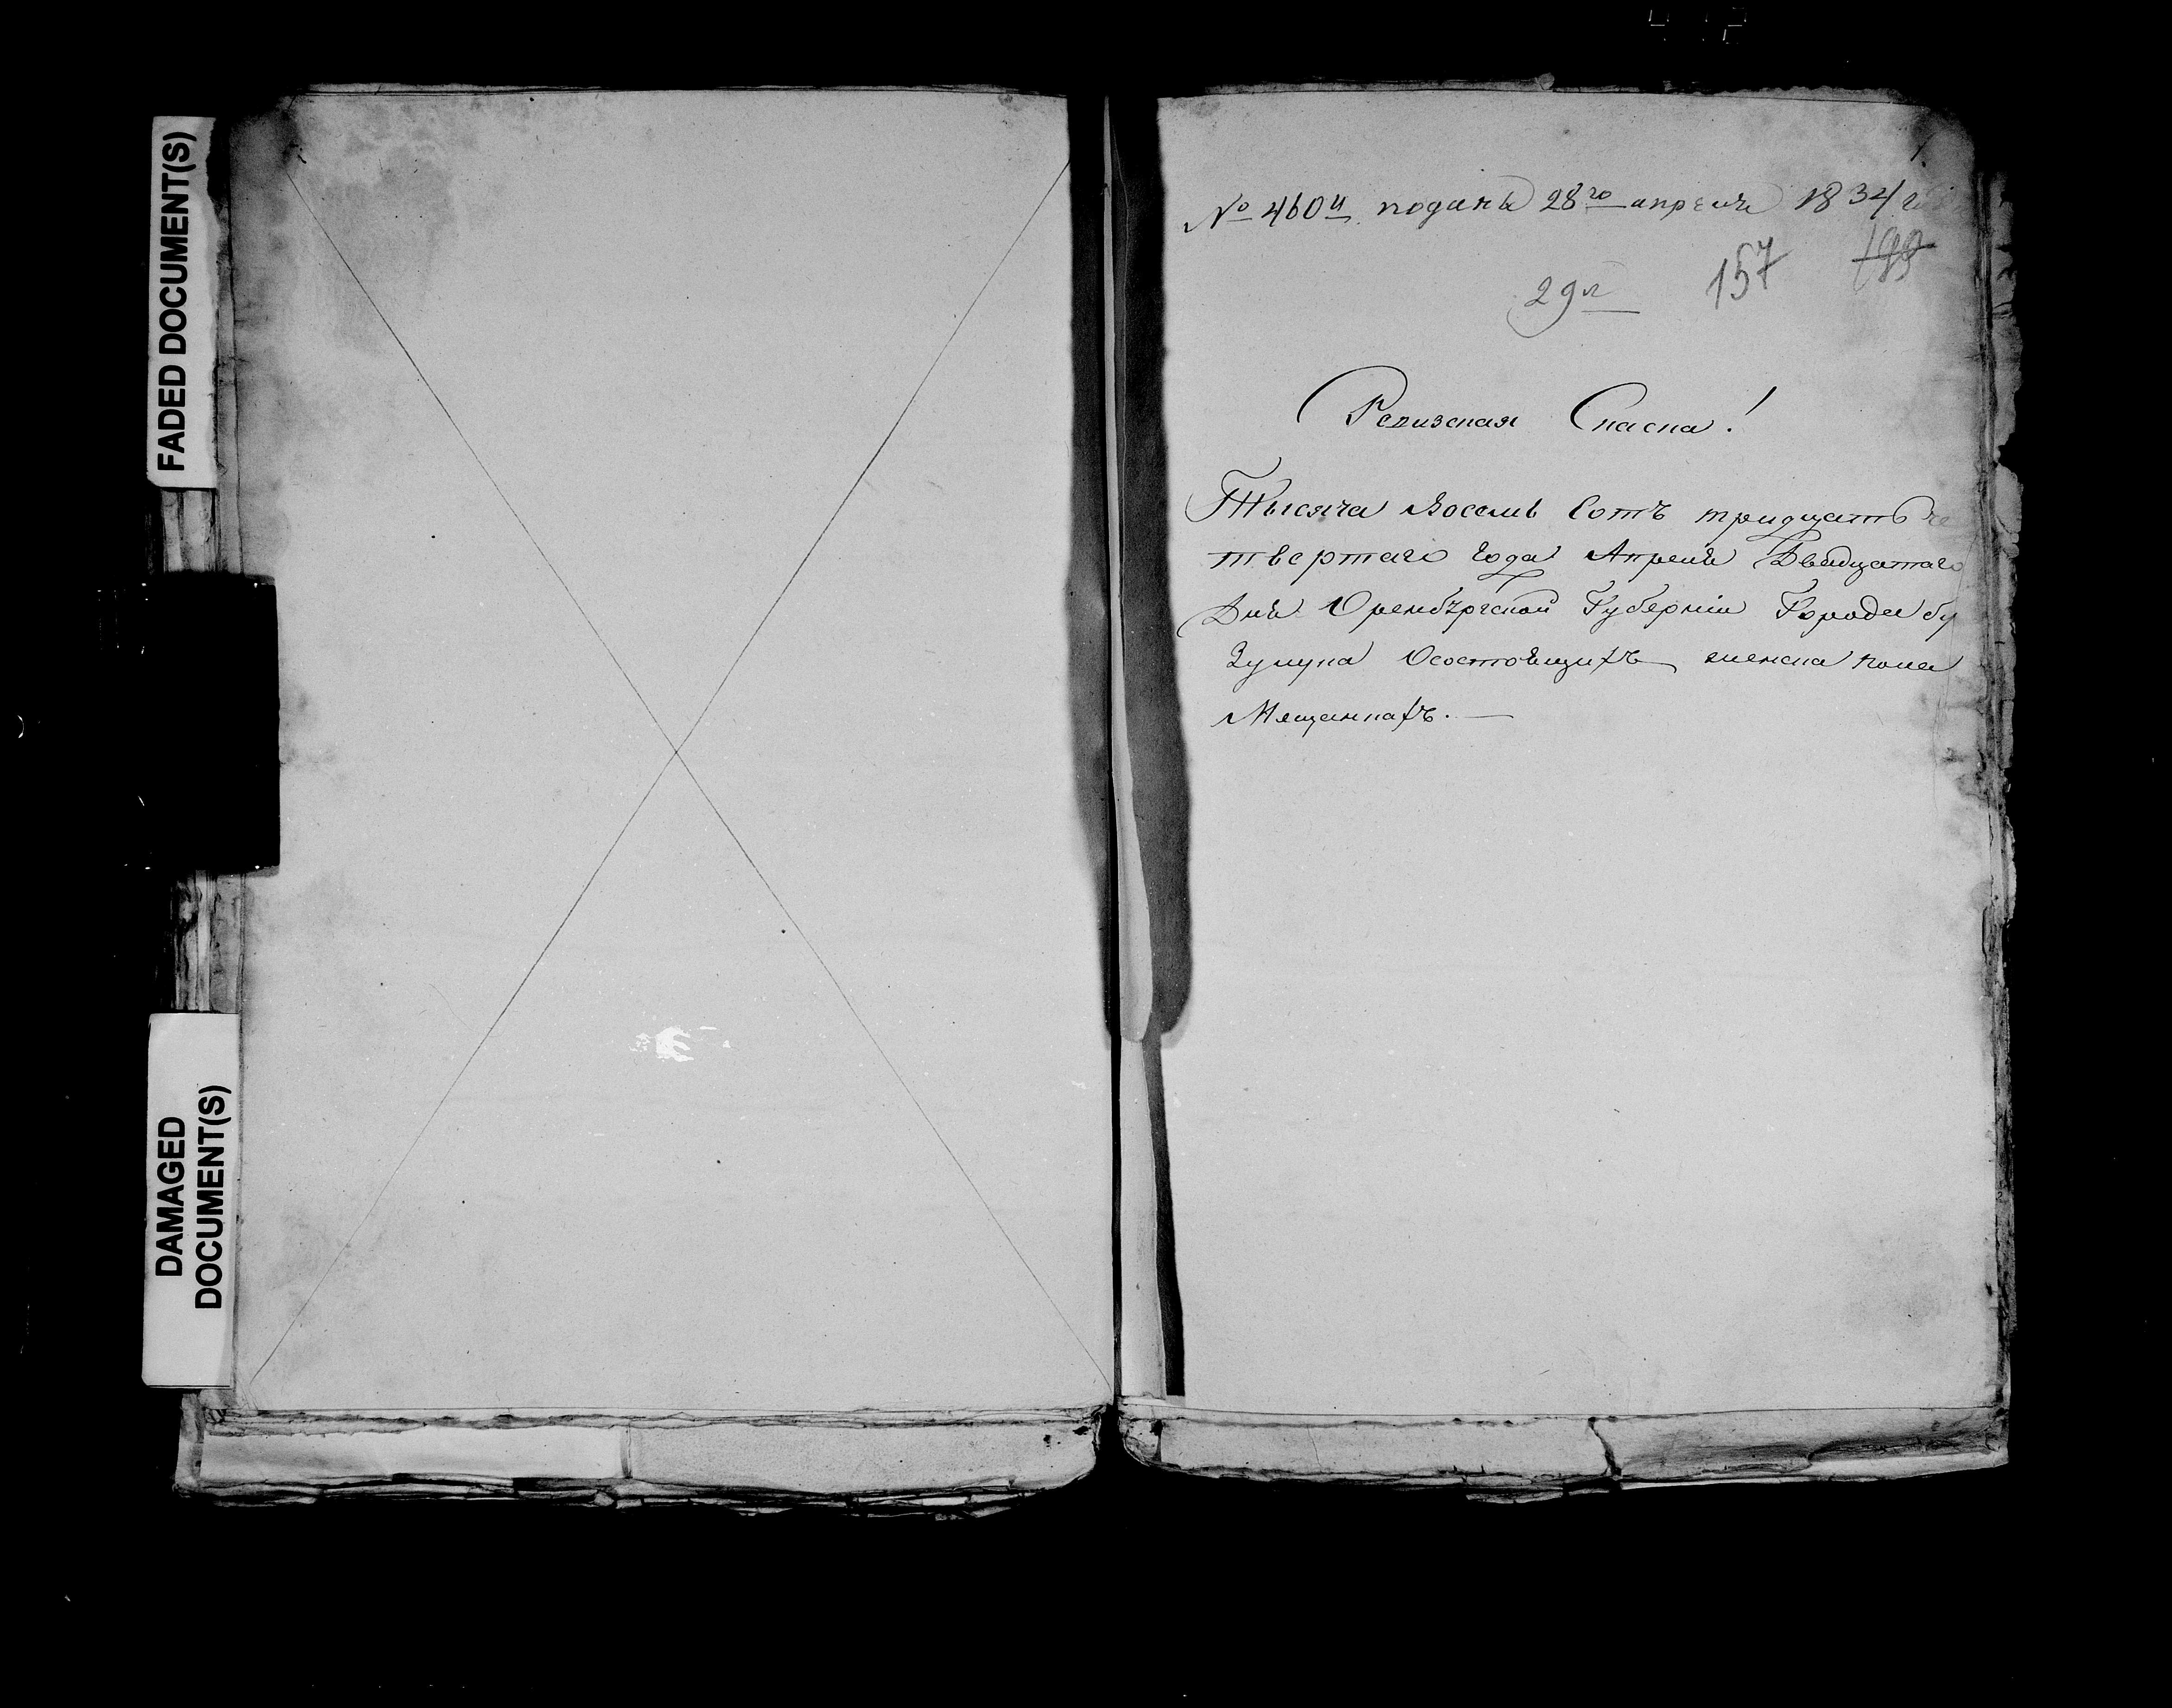 FADED DOCUMENT(S)
DAMAGED
DOCUMENT(S)
№ 460й подана 28го апреля 1834 г
29 л 157 199
Ревизская Скаска!
Тысяча восемь сотъ тридцать че
твертаго года Апреля Двадцатаго
Дня Оренбургской Губерніи Города бу
зулука Осостоящихъ женска пола
Мещанкахъ. —